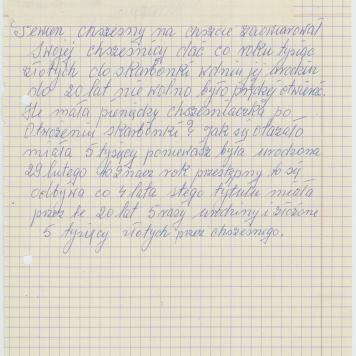 Pewien chrzesny na chrzcie zaofiarował
swojej chrześnicy dać co roku tysiąc
złotych do skarbonki w dniu jej urodzin
do 20 lat nie wolno było prędzej otwierać.
Ile miała pieniędzy chrześniaczka po
otworzeniu skarbonki? jak się okazało
miała 5 tysięcy ponieważ była urodzona
29 lutego to znacz rok przestępny to się
odbywa co 4 lata stego tytułu miała
przez te 20 lat 5 razy urodziny i złożone
5 tysięcy złotych przez chrzesnego.